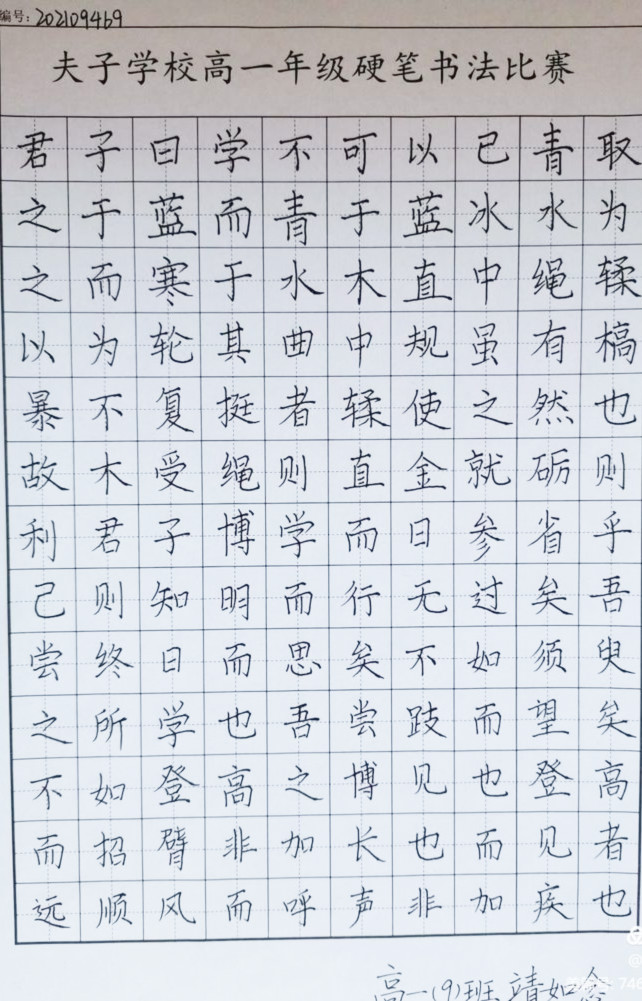 编号:202109469
夫子学校高一年级硬笔书法比赛
君子曰学不可以已青取
之于蓝而青于蓝冰水为
之而寒于水木直中绳輮
以为轮其曲中规虽有槁
暴不复挺者輮使之然也
故木受绳则直金就砺则
利君子博学而日参省乎
己则知明而行无过矣吾
尝终日而思矣不如须臾
之所学也吾尝跂而望矣
不如登高之博见也登高
而招臂非加长也而见者
远顺风而呼声非加疾也
高一(9)班 靖如